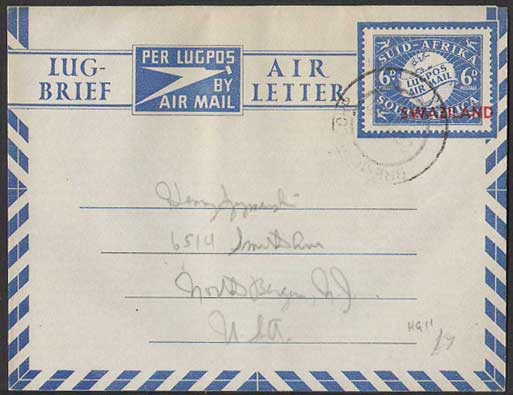 LUG-BRIEF
PER LUGPOS
BY
AIR MAIL
AIR LETTER
SUID-AFRIKA
6D LUGPOS 6D
AIR MAIL
SOUTH AFRICA
SWAZILAND
Henry
6514 Smith Ave
North Bergen, N.J.
U.S.A.
HG11
£4